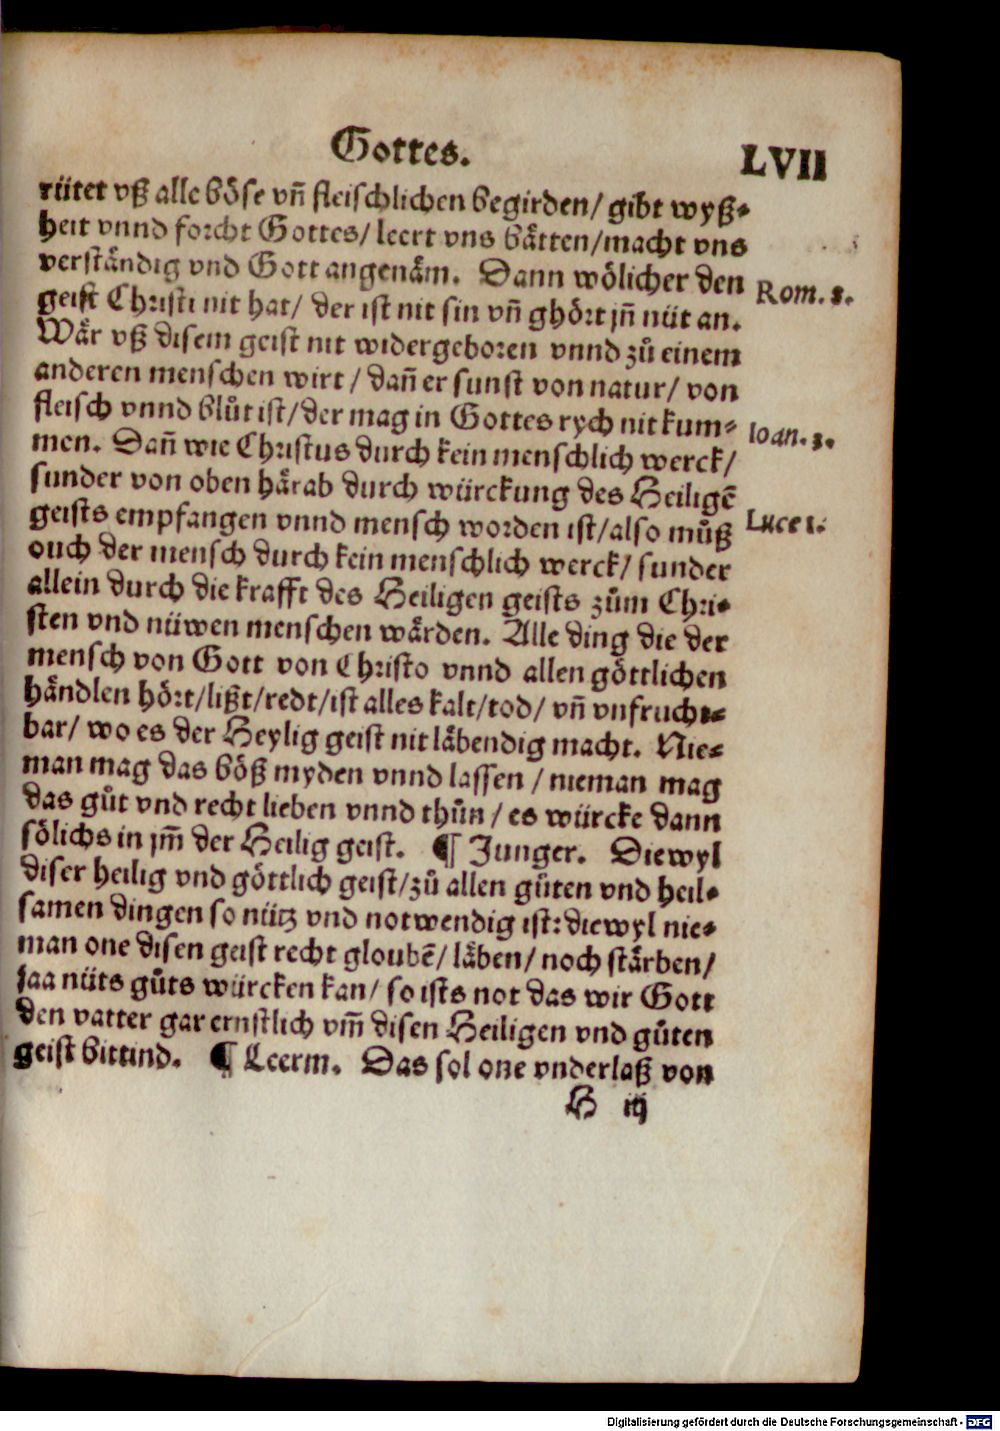 Gottes. LVII
rütet vß alle böse vñ fleischlichen begirden/ gibt wyß⸗
heit vnnd forcht Gottes/ leert vns bätten/macht vns
verständig vnd Gott angenäm. Dann wölicher den
geist Christi nit hat/ der ist nit sin vñ ghört jñ nüt an. Rom. 8.
Wär vß disem geist nit widergeboren vnnd zů einem
anderen menschen wirt / dañ er sunst von natur/ von
fleisch vnnd blůt ist/ der mag in Gottes rych nit kum⸗ Ioan. 3.
men. Dañ wie Christus durch kein menschlich werck/
sunder von oben härab durch würckung des Heiligē
geists empfangen vnnd mensch worden ist/also můß Luce 1.
ouch der mensch durch kein menschlich werck/ sunder
allein durch die krafft des Heiligen geists zům Chri⸗
sten vnd nüwen menschen wärden. Alle ding die der
mensch von Gott von Christo vnnd allen göttlichen
händlen hört/lißt/redt/ist alles kalt/tod/ vñ vnfrucht⸗
bar/ wo es der Heylig geist nit läbendig macht. Nie⸗
man mag das böß myden vnnd lassen / nieman mag
das gůt vnd recht lieben vnnd thůn / es würcke dann
sölichs in jm̄ der Heilig geist. ¶ Junger. Diewyl
diser heilig vnd göttlich geist/zů allen gůten vnd heil⸗
samen dingen so nütz vnd notwendig ist: diewyl nie⸗
man one disen geist recht gloubē/ läben/ noch stärben/
jaa nüts gůts würcken kan/ so ists not das wir Gott
den vatter gar ernstlich vm̄ disen Heiligen vnd gůten
geist bittind. ¶ Leerm. Das sol one vnderlaß von
H iij
Digitalisierung gefördert durch die Deutsche Forschungsgemeinschaft - DFG